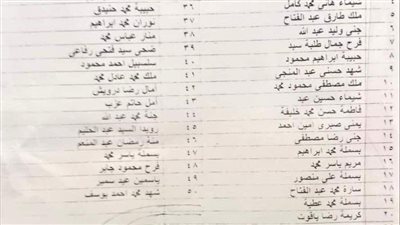 ٤ شيماء هانى محمد كامل
٥ ملك طارق عبد الفتاح
٦ جنى وليد عبد الله
٧ فرح جمال طلبة سيد
٨ حبيبة ابراهيم محمود
٩ شهد حسنى عبد المنجى
١٠ ملك مصطفى محمود محمد
١١ شيماء حسين عيد
١٢ فاطمة حسن محمد خليفة
١٣ يمنى صبرى امين احمد
١٤ جنى رضا مصطفى
١٥ بسملة محمد ابراهيم
١٦ مريم ياسر محمد
١٧ بسملة على منصور
١٨ سارة محمد عبد الفتاح
١٩ بسملة محمد عطية
٢٠ كريمة رضا ياقوت
٣٦ حبيبة محمد حنيدق
٣٧ نوران محمد ابراهيم
٣٨ منار عباس محمد
٣٩ ضحى سيد فتحى رفاعى
٤٠ سلسبيل احمد محمود
٤١ ملك محمد عادل محمد
٤٢ آمال رضا درويش
٤٣ أمل حاتم عزب
٤٤ جنة محمد عبد الله
٤٥ رويدا السيد عبد الحليم
٤٦ منة رمضان عبد المنعم
٤٧ بسملة ياسر محمد
٤٨ فرح محمود جابر
٤٩ ياسمين عيد سمير
٥٠ شهد محمد احمد يوسف